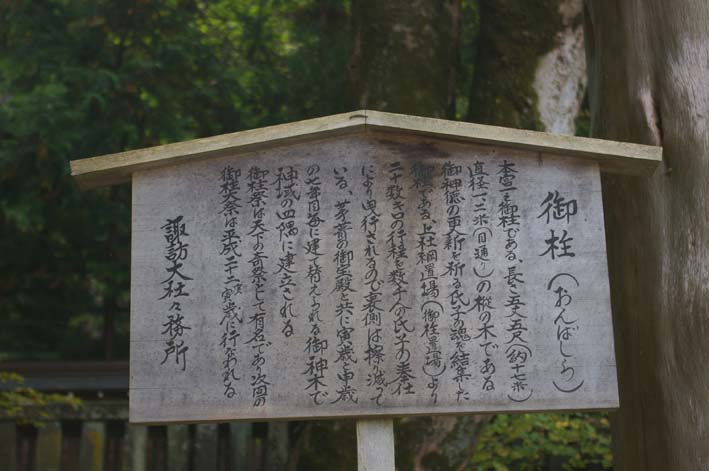 御柱（おんばしら）
本宮一之御柱である、長さ五丈五尺（約十七米）
直径一・二米（目通り）の樅の木である
御神徳の更新を祈る氏子の魂を結集した
御柱である、上社綱置場（御柱置場）より
二十数キロの行程を数千の氏子の奉仕
により曳行されるので裏側は擦り減って
いる、茅葺の御宝殿と共に寅歳と申歳
の七年目毎に建て替えられる御神木で
神域の四隅に建立される
御柱祭は天下の奇祭として有名であり次回の
御柱大祭は平成二十二寅歳に行なわれる
諏訪大社々務所